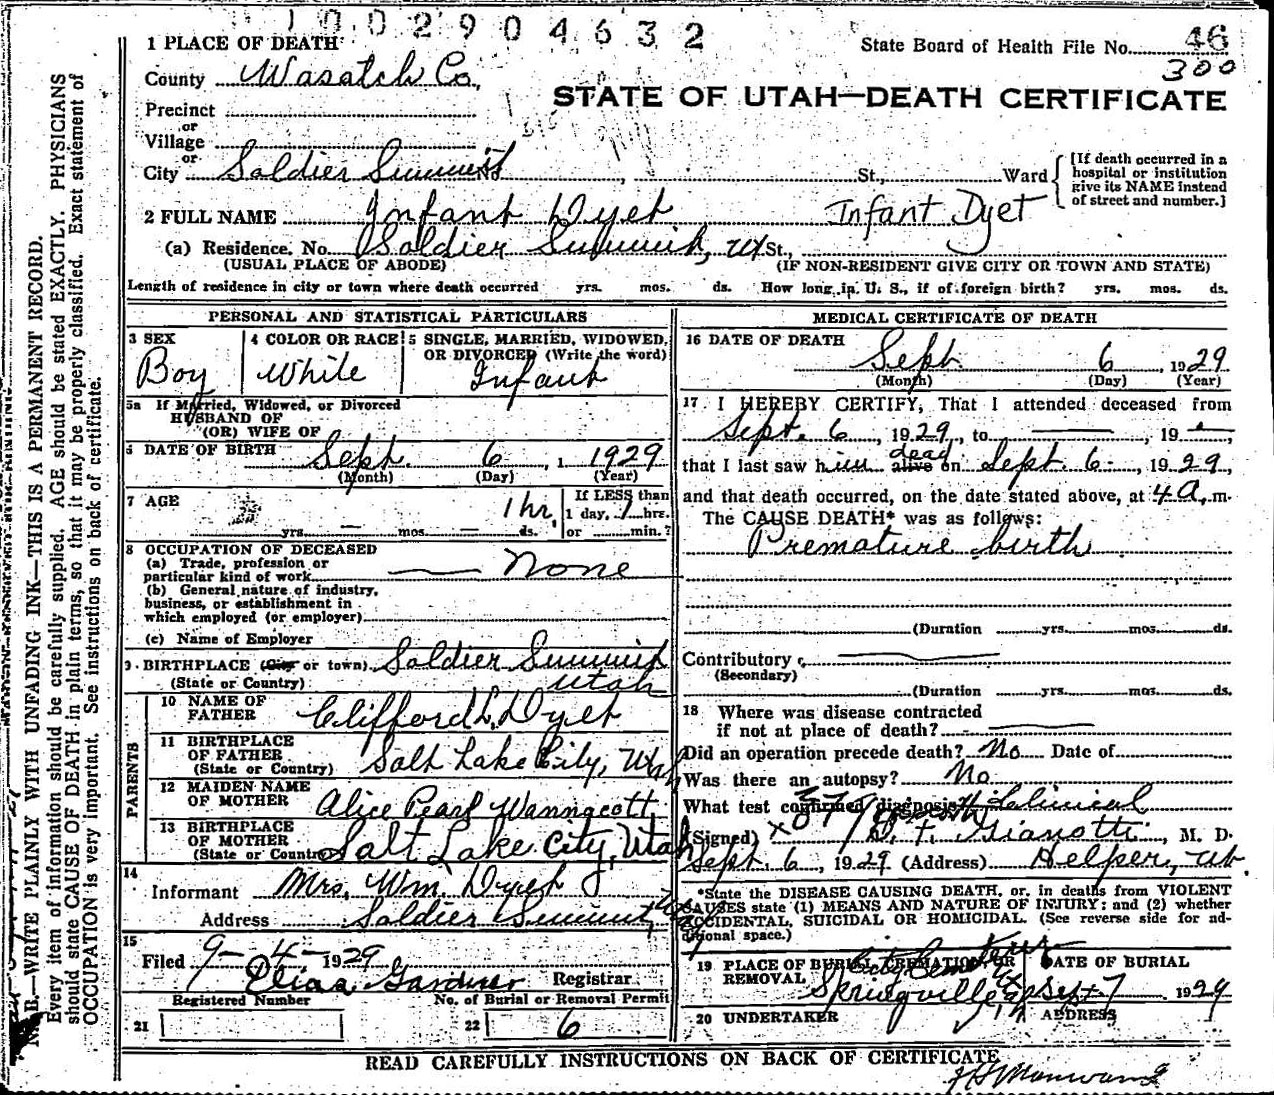 1002904632
1 PLACE OF DEATH
State Board of Health File No. 46
300
County Wasatch Co.
STATE OF UTAH—DEATH CERTIFICATE
Precinct
or
Village
or
City Soldier Summit, St., Ward
[If death occurred in a hospital or institution give its NAME instead of street and number.]
2 FULL NAME Infant Dyet Infant Dyet
(a) Residence. No. Soldier Summit, Ut St.,
(USUAL PLACE OF ABODE) (IF NON-RESIDENT GIVE CITY OR TOWN AND STATE)
Length of residence in city or town where death occurred yrs. mos. ds. How long in U. S., if of foreign birth? yrs. mos. ds.
PERSONAL AND STATISTICAL PARTICULARS
3 SEX
Boy
4 COLOR OR RACE
White
5 SINGLE, MARRIED, WIDOWED, OR DIVORCED (Write the word)
Infant
5a If Married, Widowed, or Divorced
HUSBAND OF
(OR) WIFE OF
6 DATE OF BIRTH Sept. 6, 1 1929
(Month) (Day) (Year)
7 AGE 1 hr.
yrs. — mos. — ds.
If LESS than
1 day, 1 hrs.
or min.?
8 OCCUPATION OF DECEASED
(a) Trade, profession or
particular kind of work — None
(b) General nature of industry,
business, or establishment in
which employed (or employer)
(c) Name of Employer
9 BIRTHPLACE (City or town) Soldier Summit
(State or Country) Utah
PARENTS
10 NAME OF FATHER Clifford L. Dyet
11 BIRTHPLACE OF FATHER
(State or Country) Salt Lake City, Utah
12 MAIDEN NAME OF MOTHER Alice Pearl Wanngcott
13 BIRTHPLACE OF MOTHER
(State or Country) Salt Lake City, Utah
14
Informant Mrs. Wm. Dyet
Address Soldier Summit,
15
Filed 9-4-1929
Elias Gardner Registrar
Registered Number No. of Burial or Removal Permit
21 22 6
MEDICAL CERTIFICATE OF DEATH
16 DATE OF DEATH
Sept. 6, 1929
(Month) (Day) (Year)
17 I HEREBY CERTIFY, That I attended deceased from
Sept. 6, 1929, to —, 19 —,
that I last saw him alive dead on Sept 6, 1929,
and that death occurred, on the date stated above, at 4 a. m.
The CAUSE DEATH* was as follows:
Premature birth
(Duration yrs. mos. ds.
Contributory
(Secondary)
(Duration yrs. mos. ds.
18 Where was disease contracted
if not at place of death?
Did an operation precede death? No Date of
Was there an autopsy? No
What test confirmed diagnosis? Clinical
(Signed) Gianotti, M. D.
Sept 6, 1929 (Address) Helper, Ut
*State the DISEASE CAUSING DEATH, or, in deaths from VIOLENT
CAUSES state (1) MEANS AND NATURE OF INJURY; and (2) whether
ACCIDENTAL, SUICIDAL OR HOMICIDAL. (See reverse side for additional space.)
19 PLACE OF BURIAL, CREMATION OR REMOVAL
City Cemetery
Springville
DATE OF BURIAL
Sept 7 1929
20 UNDERTAKER ADDRESS
READ CAREFULLY INSTRUCTIONS ON BACK OF CERTIFICATE
N. B.—WRITE PLAINLY WITH UNFADING INK—THIS IS A PERMANENT RECORD.
Every item of information should be carefully supplied. AGE should be stated EXACTLY. PHYSICIANS
should state CAUSE OF DEATH in plain terms, so that it may be properly classified. Exact statement of
OCCUPATION is very important. See instructions on back of certificate.